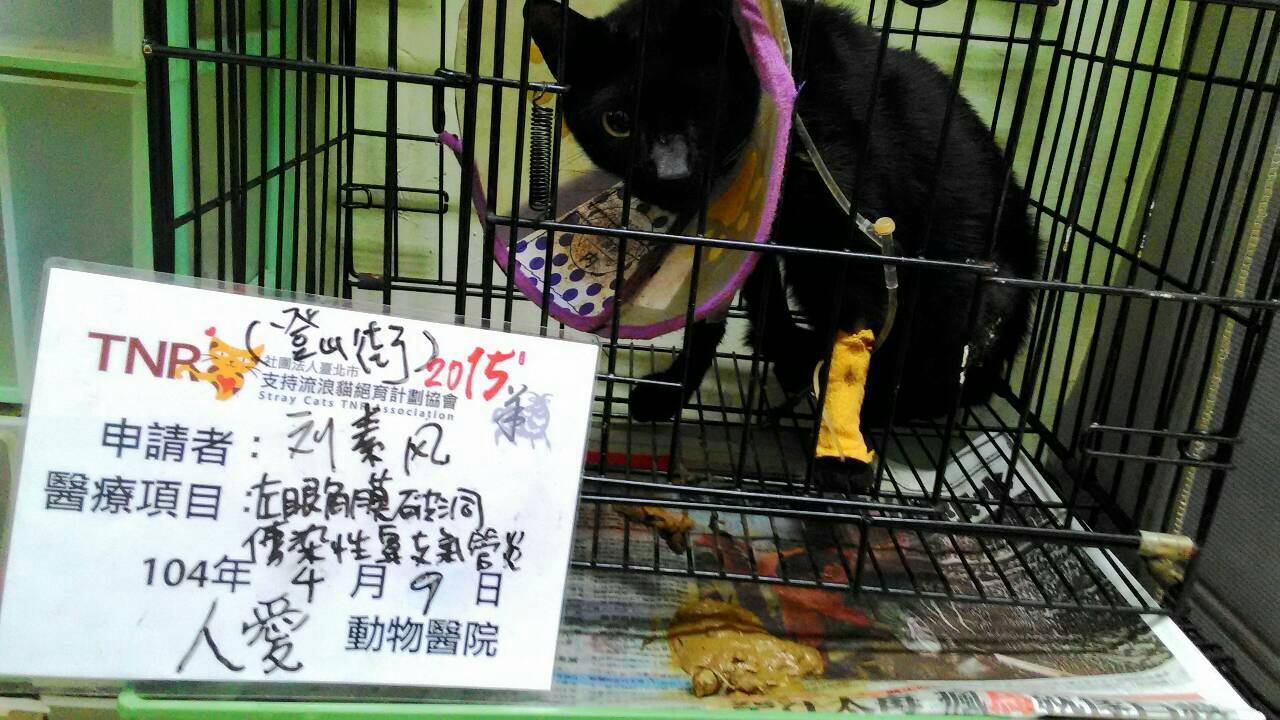 (登山街)
TNR
社團法人臺北市
2015
支持流浪貓絕育計劃協會
Stray Cats TNR Association
羊
申請者：刘素风
醫療項目：左眼角膜破洞
傳染性鼻支氣管炎
104年 4 月 9 日
人愛 動物醫院